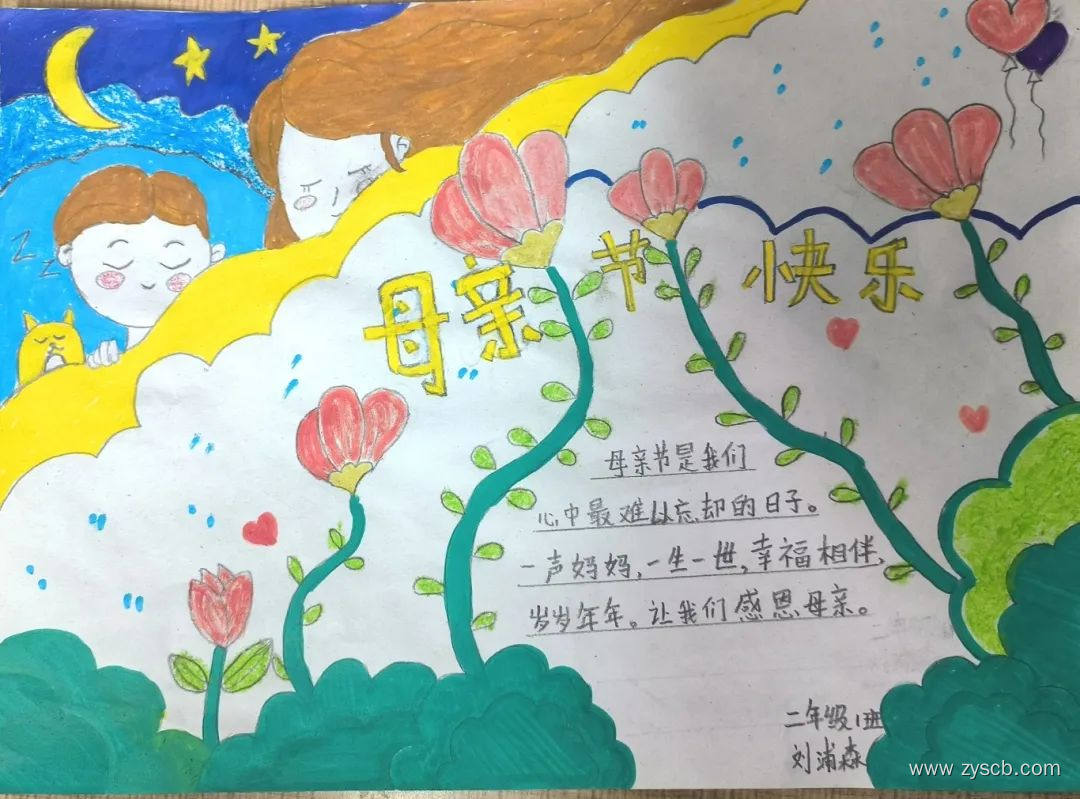 母亲节快乐
母亲节是我们
心中最难以忘却的日子。
一声妈妈,一生一世,幸福相伴,
岁岁年年。让我们感恩母亲。
二年级1班
刘浦森
www.zyscb.com
zz